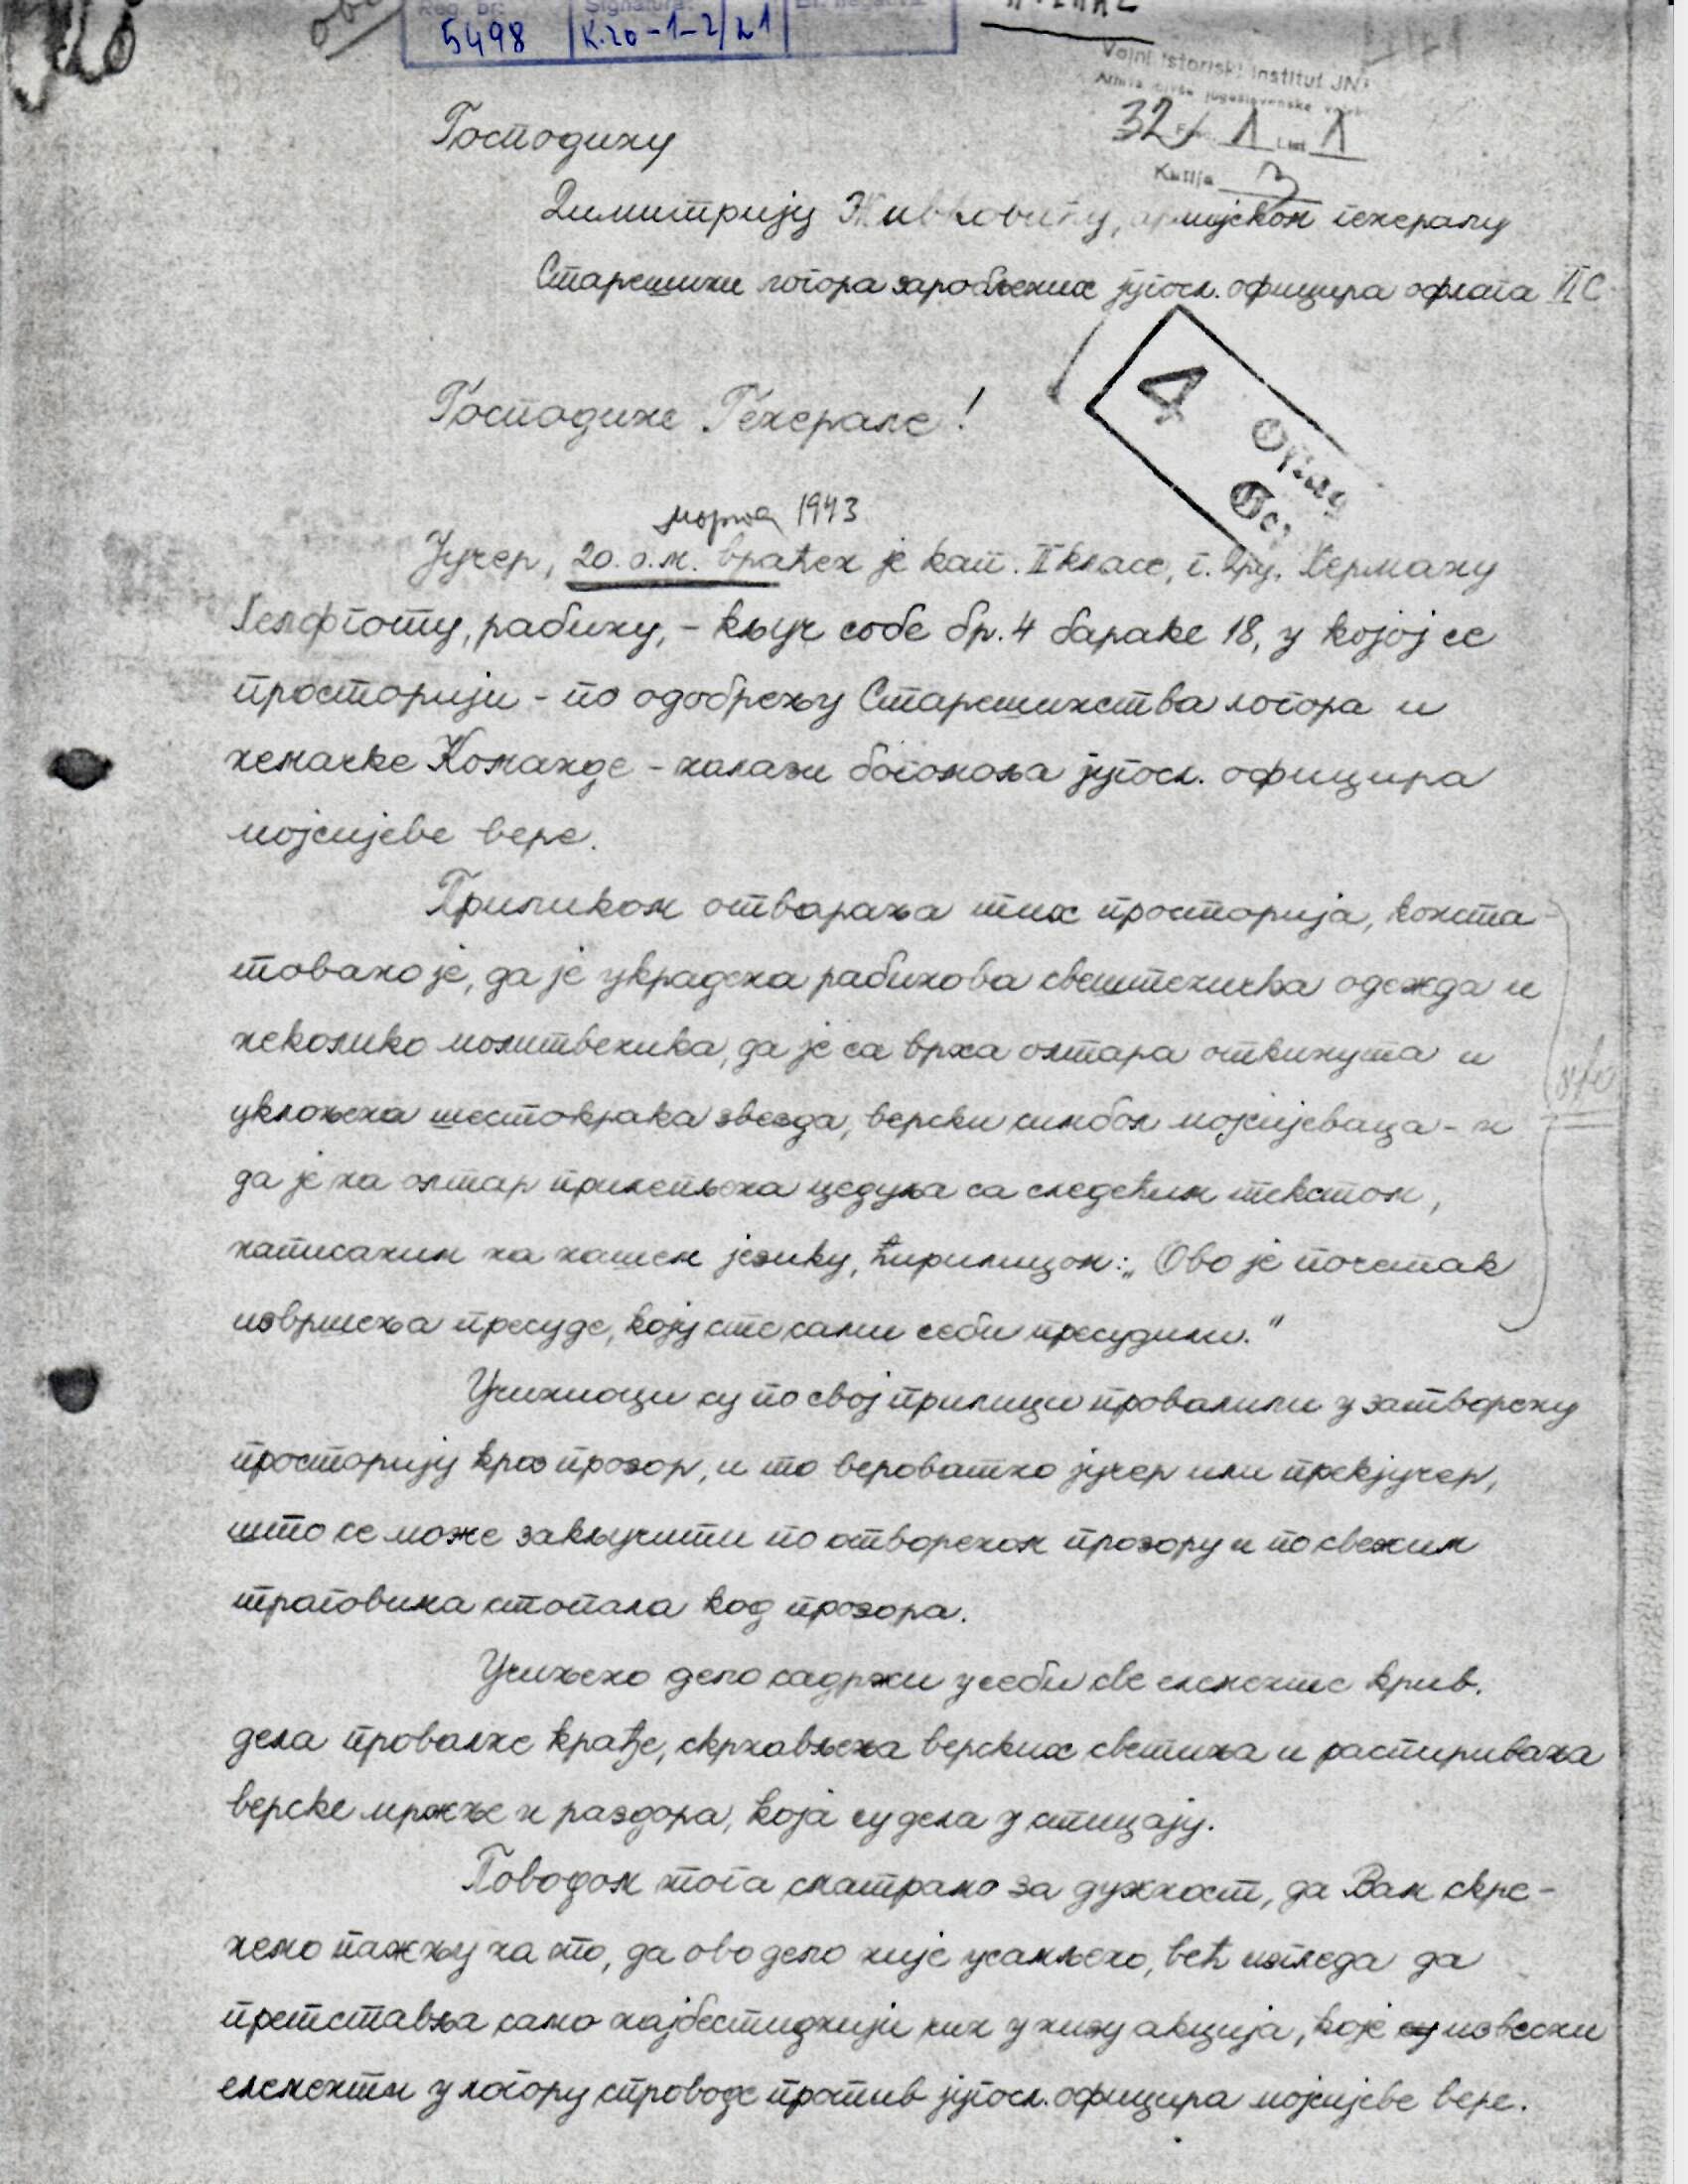 Reg. br: Signatura:
5498 K.20-1-2/21
Vojni istoriski institut JNA
32 1 1
Kutija 3
Господину
Димитрију Живковићу, армијском генералу
Старешини логора заробљених југосл. официра офлага VI C
Господине Генерале!
4
марта 1943
Јучер, 20. о.м. враћен је кап. II класе, г. Дру. Херману
Хелфготу, рабину, - кључ собе бр. 4 бараке 18, у којој се
просторији - по одобрењу Старешинства логора и
немачке Команде - налази богомоља југосл. официра
мојсијеве вере.
Приликом отварања тих просторија, конста-
товано је, да је украдена рабинова свештеничка одежда и
неколико молитвеника, да је са врха олтара откинута и
уклоњена шестокрака звезда, верски симбол мојсијеваца - и
да је на олтар прилепљена цедуља са следећим текстом,
написаним на нашем језику, ћирилицом: „Ово је почетак
извршења пресуде, коју сте сами себи пресудили."
Учиниоци су по свој прилици провалили у затворену
просторију кроз прозор, и то вероватно јучер или прекјучер,
што се може закључити по отвореном прозору и по свежим
траговима стопала код прозора.
Учињено дело садржи у себи све елементе крив.
дела провалне крађе, скрнављења верских светиња и распиривања
верске мржње и раздора, која су дела у стицају.
Поводом тога сматрамо за дужност, да Вам скре-
немо пажњу на то, да ово дело није усамљено, већ изгледа да
претставља само најбестиднији чин у низу акција, које су извесни
елементи у логору спроводе против југосл. официра мојсијеве вере.